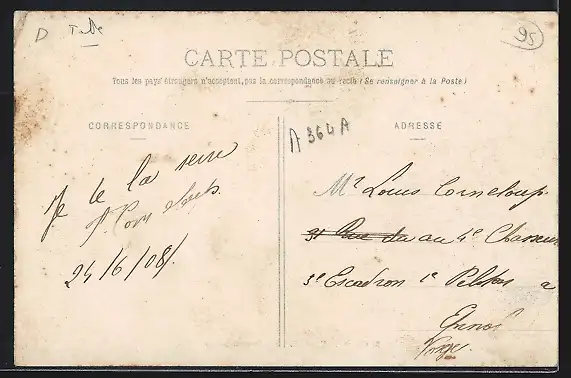 D
95
CARTE POSTALE
Tous les pays étrangers n'acceptent pas la correspondance au recto (Se renseigner à la Poste)
CORRESPONDANCE
A 364 A
ADRESSE
Je te la serre
24/6/08/.
Mr Louis Corneloup
31 Rue du au 4e Chasseurs
3e Escadron 1e Peloton a
Epinal
Vosges